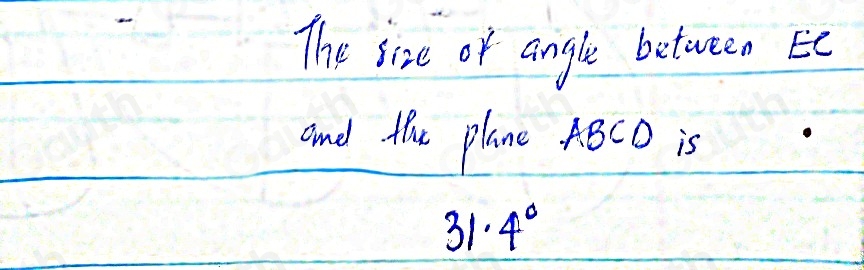 The size of angle between EC
and the plane ABCD is .
31.4°